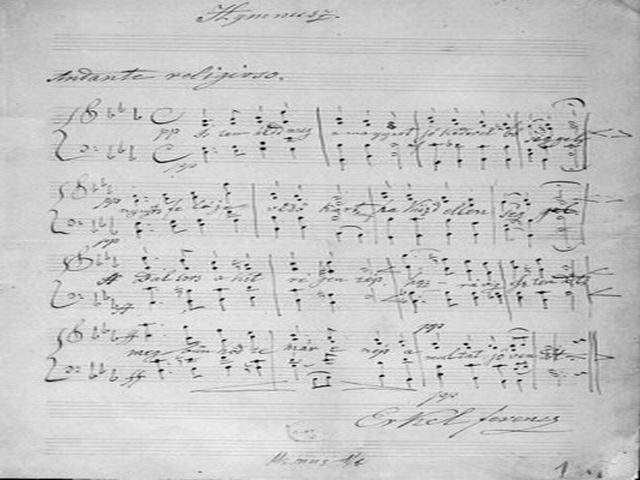 Hymnusz.
Andante religioso.
pp Isten áldd meg a magyart jó kedvel bő séggel
pp
pp nyújts fe léje védő kart, ha küzd ellen ség gel
pp
ff Bal sors a kit ré gen tép, hoz - rá víg esz ten dőt
ff
ff meg bün hőd te már e nép a multat jö ven dőt
ff
pp
pp
Erkel Ferencz
Ms. mus.
1